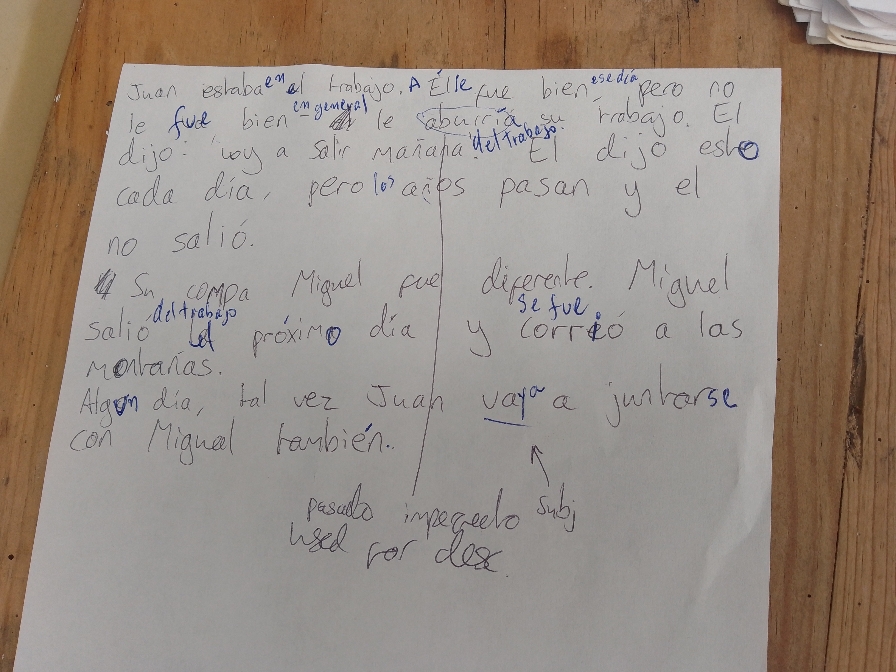 Juan estaba en el trabajo. A Él le fue bien ese día pero no
le fue bien en general le aburría su trabajo. El
dijo: "voy a salir mañana" del trabajo. El dijo esto
cada día, pero los años pasan y el
no salió.
Su compa Miguel fue diferente. Miguel
salió del trabajo el próximo día y se fue corrió a las
montañas.
Algun día, tal vez Juan vaya a juntarse
con Miguel también.
pasado imperfecto subj
used for desc.